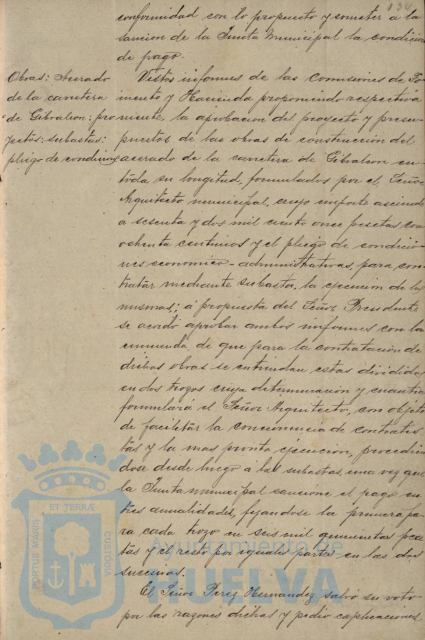 conformidad con lo propuesto y someter a la
sancion de la Junta Municipal la condicion
de pago.
Obras: Acerado
de la carretera
de Gibraleon: pro
yectos: subastas:
pliego de condiciones
Vistos informes de las Comisiones de Fo
mento y Hacienda proponiendo respectiva
mente, la aprobacion del proyecto y presu-
puestos de las obras de construccion del
acerado de la carretera de Gibraleon en
toda su longitud, formulados por el Señor
Arquitecto municipal, cuyo importe asciende
a sesenta y dos mil ciento once pesetas con
ochenta centimos y el pliego de condicio-
nes economico-administrativas, para con
tratar mediante subasta, la ejecucion de las
mismas; a propuesta del Señor Presidente
se acordó aprobar ambos informes con la
enmienda de que para la contratacion de
dichas obras se entiendan estas divididas
en dos trozos cuya determinacion y cuantia
formulará el Señor Arquitecto, con objeto
de facilitar la concurrencia de contratis
tas y la mas pronta ejecucion, procedien
dose desde luego a las subastas, una vez que
la Junta municipal sancione el pago en
tres anualidades, fijandose la primera pa
ra cada trozo en seis mil quinientas pese
tas y el resto por iguales partes en las dos
sucesivas.
El Señor Perez Hernandez salvó su voto
por las razones dichas y pidió explicaciones
PORTUS MARIS
ET TERRÆ
CUSTODIA
Ayuntamiento de
HUELVA